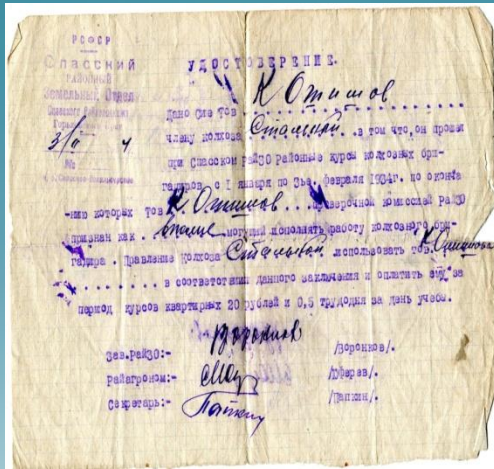 РСФСР
Спасский
РАЙОННЫЙ
Земельный Отдел
УДОСТОВЕРЕНИЕ.
Дано сие тов
члену колхоза Стальной . в том что, он прошел
при Спасском рай30 районные курсы колхозных бри-
гадиров с I января по 3ье. февраля 1934г. по оконча
-нию которых тов К. проверочной комиссией Рай30
признан как . вполне . могущий исполнять работу колхозного бри-
гадира . Правление колхоза Стальной использовать тов.
в соответствии данного заключения и оплатить ему за
период курсов квартирных 20 рублей и 0,5 трудодня за день учебы.
Зав.Рай30:- Воронков /Воронков/.
Райагроном:-
Секретарь:- Папкин /Папкин/.